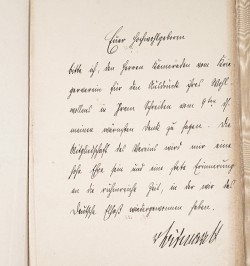 Euer Hochwohlgeboren
bitte ich, den Herren Kameraden vom
für den Ausdruck ihres Wohl-
wollens in Ihrem Schreiben vom 9ten d.
meinen wärmsten Dank zu sagen. Die
Mitgliedschaft des Vereins wird mir eine
hohe Ehre sein und eine stete Erinnerung
an die ruhmreiche Zeit, in der wir das
Deutsche Elsaß wiedergewonnen haben.
v Bismarck